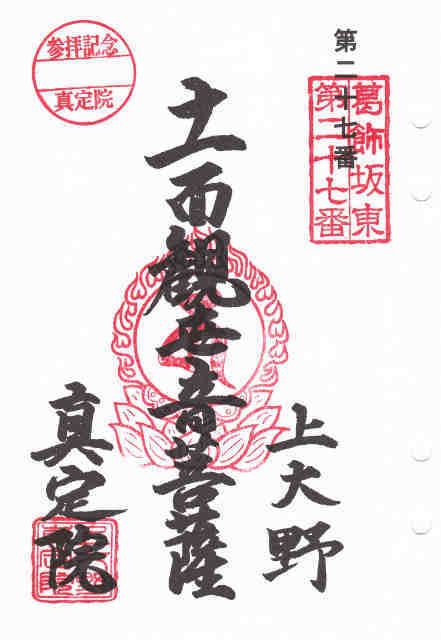 第二十七番
葛飾坂東
第二十七番
上大野
十一面観世音菩薩
参拝記念
真定院
真定院